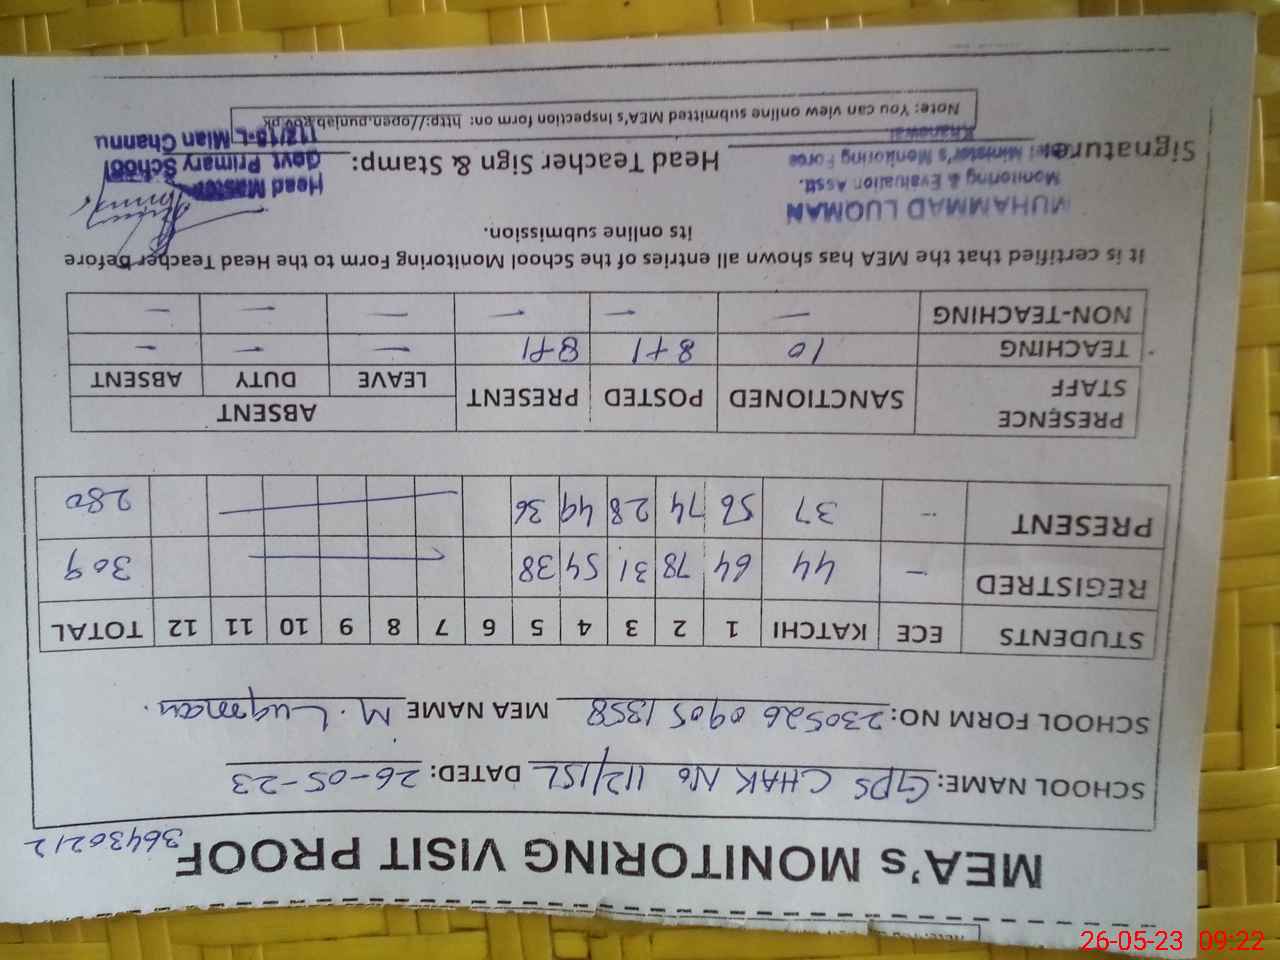 MEA's MONITORING VISIT PROOF
36430212
SCHOOL NAME: GPS CHAK No 112/15L DATED: 26-05-23
SCHOOL FORM NO: 230526 0905 1358 MEA NAME M. Luqman.
STUDENTS ECE KATCHI 1 2 3 4 5 6 7 8 9 10 11 12 TOTAL
REGISTRED - 44 64 78 31 54 38 309
PRESENT - 37 56 74 28 49 36 280
PRESENCE STAFF SANCTIONED POSTED PRESENT ABSENT
LEAVE DUTY ABSENT
TEACHING 10 8+1 8+1 - - -
NON-TEACHING - - - - - -
It is certified that the MEA has shown all entries of the School Monitoring Form to the Head Teacher before
its online submission.
MUHAMMAD LUQMAN
Monitoring & Evaluation Asstt.
Chief Minister's Monitoring Force
Khanewal
Signature
Head Teacher Sign & Stamp:
Head Master
Govt. Primary School
112/15-L Mian Channu
Note: You can view online submitted MEA's Inspection form on: http://open.punjab.gov.pk
26-05-23 09:22